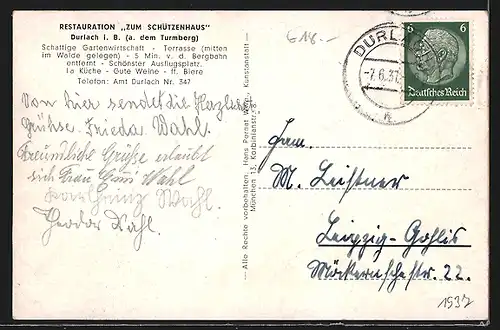 RESTAURATION "ZUM SCHÜTZENHAUS"
Durlach i. B. (a. dem Turmberg)
Schattige Gartenwirtschaft - Terrasse (mitten
im Walde gelegen) - 5 Min. v. d. Bergbahn
entfernt - Schönster Ausflugsplatz.
Ia Küche - Gute Weine - ff. Biere
Telefon: Amt Durlach Nr. 347
Von hier sendet die Herzlichst
Grüße. Frieda Wahl.
Freundliche Grüße erlaubt
sich Frau Wahl
Karl Heinz Wahl.
Theodor Wahl.
Alle Rechte vorbehalten, Hans Pernat Kunstanstalt
München 13, Korbinianstr. 8
618.-
DURL
-7.6.37
6 6
Deutsches Reich
Fam.
M. Leistner
Leipzig-Gohlis
Möckernschestr. 22.
1937